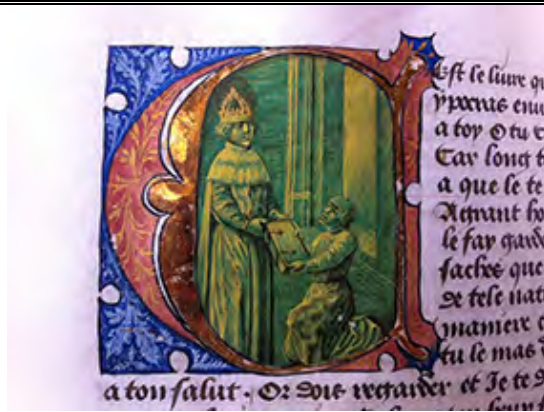 Est le liure qu
ypocras enu
a toy O tu
Car long t
a que le te
le fay garde
saches que
de tele nat
maniere
tu le mas
a ton salut . Or dois regarder et Je te d